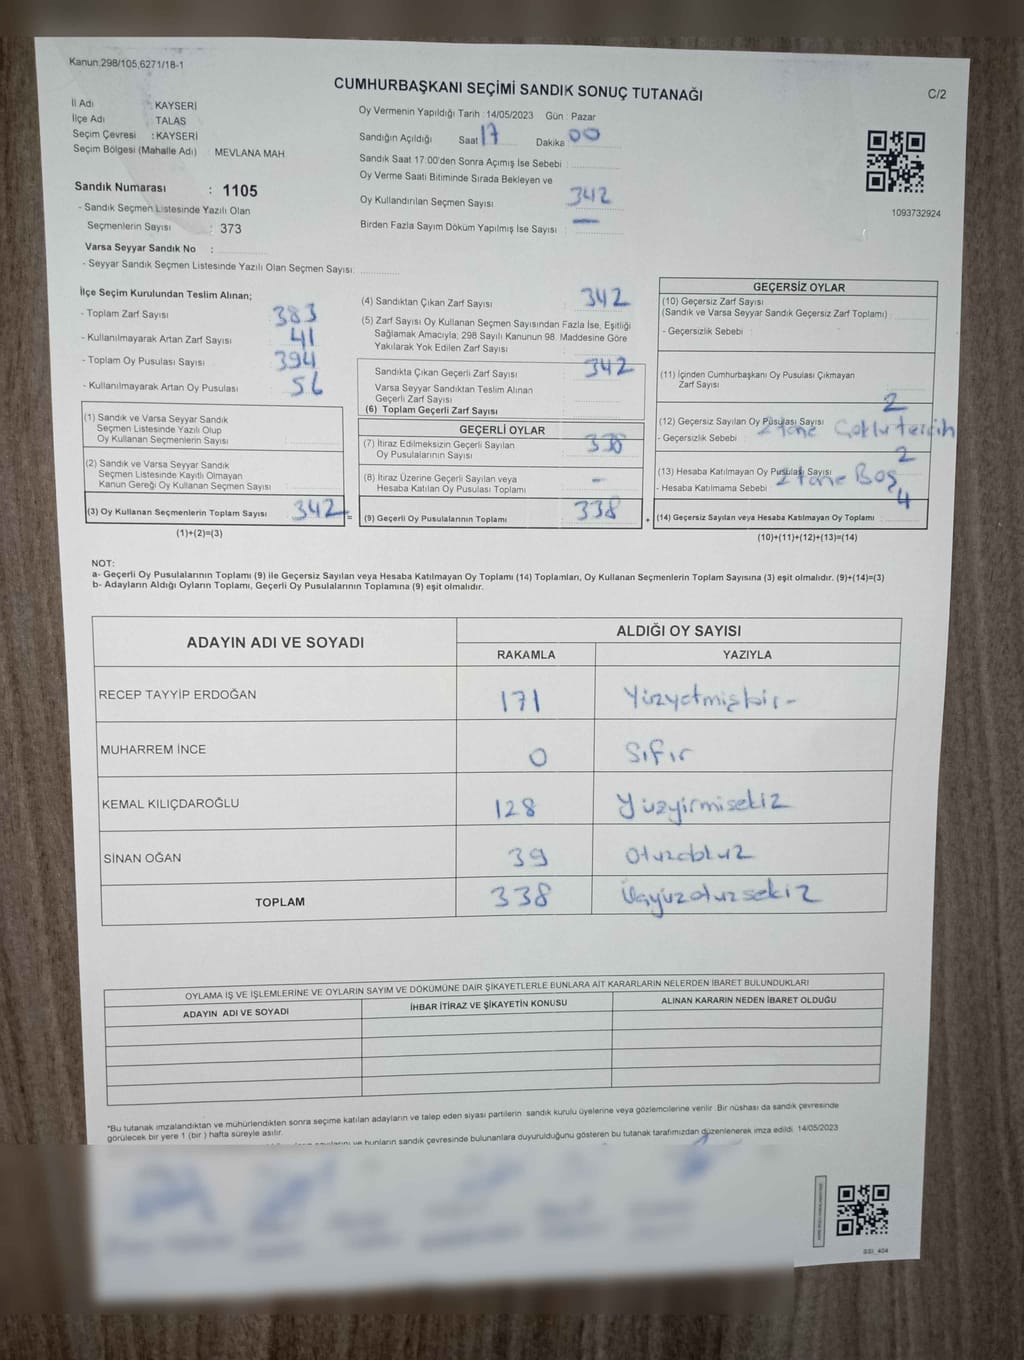 Kanun.298/105,6271/18-1
CUMHURBAŞKANI SEÇİMİ SANDIK SONUÇ TUTANAĞI
C/2
İl Adı : KAYSERİ
İlçe Adı TALAS
Seçim Çevresi : KAYSERİ
Seçim Bölgesi (Mahalle Adı) : MEVLANA MAH
Sandık Numarası : 1105
- Sandık Seçmen Listesinde Yazılı Olan
Seçmenlerin Sayısı : 373
Varsa Seyyar Sandık No :
- Seyyar Sandık Seçmen Listesinde Yazılı Olan Seçmen Sayısı:
Oy Vermenin Yapıldığı Tarih : 14/05/2023 Gün : Pazar
Sandığın Açıldığı Saat 17 Dakika 00
Sandık Saat 17:00'den Sonra Açımış İse Sebebi
Oy Verme Saati Bitiminde Sırada Bekleyen ve
Oy Kullandırılan Seçmen Sayısı 342
Birden Fazla Sayım Döküm Yapılmış İse Sayısı : —
1093732924
İlçe Seçim Kurulundan Teslim Alınan;
- Toplam Zarf Sayısı 383
- Kullanılmayarak Artan Zarf Sayısı 41
- Toplam Oy Pusulası Sayısı 394
- Kullanılmayarak Artan Oy Pusulası 56
(1) Sandık ve Varsa Seyyar Sandık
Seçmen Listesinde Yazılı Olup
Oy Kullanan Seçmenlerin Sayısı
(2) Sandık ve Varsa Seyyar Sandık
Seçmen Listesinde Kayıtlı Olmayan
Kanun Gereği Oy Kullanan Seçmen Sayısı
(3) Oy Kullanan Seçmenlerin Toplam Sayısı 342
(1)+(2)=(3)
(4) Sandıktan Çıkan Zarf Sayısı 342
(5) Zarf Sayısı Oy Kullanan Seçmen Sayısından Fazla İse, Eşitliği
Sağlamak Amacıyla; 298 Sayılı Kanunun 98. Maddesine Göre
Yakılarak Yok Edilen Zarf Sayısı
Sandıkta Çıkan Geçerli Zarf Sayısı 342
Varsa Seyyar Sandıktan Teslim Alınan
Geçerli Zarf Sayısı
(6) Toplam Geçerli Zarf Sayısı
GEÇERLİ OYLAR
(7) İtiraz Edilmeksizin Geçerli Sayılan
Oy Pusulalarının Sayısı 338
(8) İtiraz Üzerine Geçerli Sayılan veya
Hesaba Katılan Oy Pusulası Toplamı -
= (9) Geçerli Oy Pusulalarının Toplamı 338
GEÇERSİZ OYLAR
(10) Geçersiz Zarf Sayısı
(Sandık ve Varsa Seyyar Sandık Geçersiz Zarf Toplamı)
- Geçersizlik Sebebi :
(11) İçinden Cumhurbaşkanı Oy Pusulası Çıkmayan
Zarf Sayısı
(12) Geçersiz Sayılan Oy Pusulası Sayısı 2
- Geçersizlik Sebebi : 2 tane Çoklu tercih
(13) Hesaba Katılmayan Oy Pusulası Sayısı 2
- Hesaba Katılmama Sebebi 2 tane Boş
+ (14) Geçersiz Sayılan veya Hesaba Katılmayan Oy Toplamı 4
(10)+(11)+(12)+(13)=(14)
NOT:
a- Geçerli Oy Pusulalarının Toplamı (9) ile Geçersiz Sayılan veya Hesaba Katılmayan Oy Toplamı (14) Toplamları, Oy Kullanan Seçmenlerin Toplam Sayısına (3) eşit olmalıdır. (9)+(14)=(3)
b- Adayların Aldığı Oyların Toplamı, Geçerli Oy Pusulalarının Toplamına (9) eşit olmalıdır.
ADAYIN ADI VE SOYADI ALDIĞI OY SAYISI
RAKAMLA YAZIYLA
RECEP TAYYİP ERDOĞAN 171 Yüzyetmişbir-
MUHARREM İNCE 0 Sıfır
KEMAL KILIÇDAROĞLU 128 Yüzyirmisekiz
SİNAN OĞAN 39 Otuzdokuz
TOPLAM 338 Üçyüzotuzsekiz
OYLAMA İŞ VE İŞLEMLERİNE VE OYLARIN SAYIM VE DÖKÜMÜNE DAİR ŞİKAYETLERLE BUNLARA AİT KARARLARIN NELERDEN İBARET BULUNDUKLARI
ADAYIN ADI VE SOYADI İHBAR İTİRAZ VE ŞİKAYETİN KONUSU ALINAN KARARIN NEDEN İBARET OLDUĞU
*Bu tutanak imzalandıktan ve mühürlendikten sonra seçime katılan adayların ve talep eden siyasi partilerin sandık kurulu üyelerine veya gözlemcilerine verilir. Bir nüshası da sandık çevresinde
görülecek bir yere 1 (bir ) hafta süreyle asılır.
ve bunların sandık çevresinde bulunanlara duyurulduğunu gösteren bu tutanak tarafımızdan düzenlenerek imza edildi. 14/05/2023